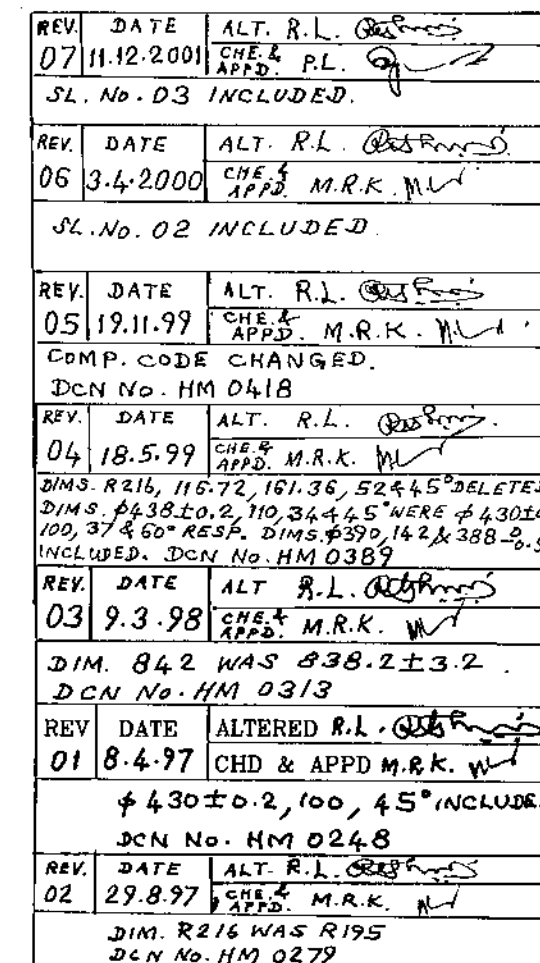 REV. DATE ALT. R.L.
07 11.12.2001 CHE. & APPD. P.L.
SL. No. 03 INCLUDED.
REV. DATE ALT. R.L.
06 3.4.2000 CHE. & APPD. M.R.K.
SL. No. 02 INCLUDED
REV. DATE ALT. R.L.
05 19.11.99 CHE. & APPD. M.R.K.
COMP. CODE CHANGED.
DCN No. HM 0418
REV. DATE ALT. R.L.
04 18.5.99 CHE. & APPD. M.R.K.
DIMS. R216, 116.72, 161.36, 52 & 45° DELETED
DIMS. φ438±0.2, 110, 34 & 45° WERE φ430±
100, 37 & 60° RESP. DIMS. φ390, 142 & 388
INCLUDED. DCN No. HM 0389
REV. DATE ALT R.L.
03 9.3.98 CHE. & APPD. M.R.K.
DIM. 842 WAS 838.2±3.2.
DCN No. HM 0313
REV DATE ALTERED R.L.
01 8.4.97 CHD & APPD M.R.K.
φ430±0.2, 100, 45° INCLUDE
DCN No. HM 0248
REV. DATE ALT. R.L.
02 29.8.97 CHE. & APPD. M.R.K.
DIM. R216 WAS R195
DCN No. HM 0279